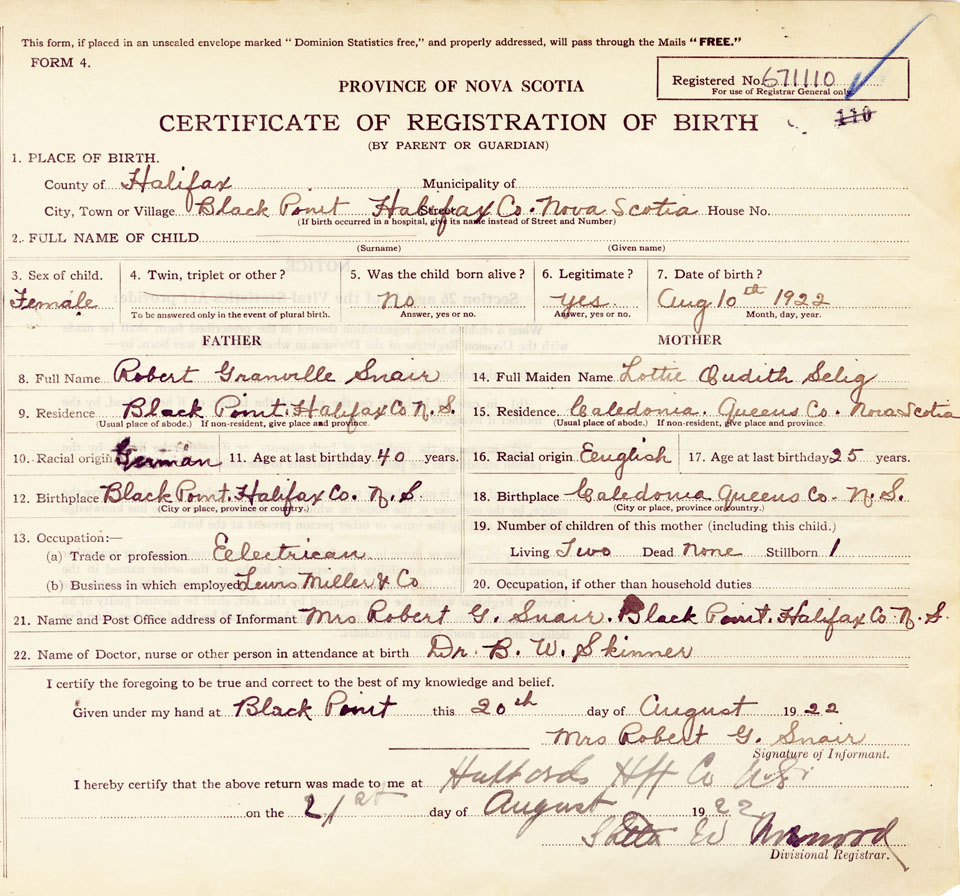 This form, if placed in an unsealed envelope marked " Dominion Statistics free," and properly addressed, will pass through the Mails "FREE."
FORM 4.
Registered No. 671110
For use of Registrar General only.
110
PROVINCE OF NOVA SCOTIA
CERTIFICATE OF REGISTRATION OF BIRTH
(BY PARENT OR GUARDIAN)
1. PLACE OF BIRTH.
County of Halifax Municipality of
City, Town or Village Black Point Halifax Co. Nova Scotia Street House No.
(If birth occurred in a hospital, give its name instead of Street and Number)
2. FULL NAME OF CHILD
(Surname) (Given name)
3. Sex of child. 4. Twin, triplet or other? 5. Was the child born alive? 6. Legitimate? 7. Date of birth?
Female No yes Aug 10th 1922
To be answered only in the event of plural birth. Answer, yes or no. Answer, yes or no. Month, day, year.
FATHER MOTHER
8. Full Name Robert Granville Snair 14. Full Maiden Name Lottie Eudith Selig
9. Residence Black Point. Halifax Co N. S. 15. Residence Caledonia. Queens Co. Nova Scotia
(Usual place of abode.) If non-resident, give place and province. (Usual place of abode.) If non-resident, give place and province.
10. Racial origin German 11. Age at last birthday 40 years. 16. Racial origin Eenglish 17. Age at last birthday 25 years.
12. Birthplace Black Point. Halifax Co. N. S 18. Birthplace Caledonia Queens Co. N. S.
(City or place, province or country.) (City or place, province or country.)
13. Occupation:— 19. Number of children of this mother (including this child.)
(a) Trade or profession Eelectrican Living Two Dead None Stillborn 1
(b) Business in which employed Lewis Miller & Co 20. Occupation, if other than household duties
21. Name and Post Office address of Informant Mrs Robert G. Snair. Black Point. Halifax Co. N. S.
22. Name of Doctor, nurse or other person in attendance at birth Dr. B. W. Skinner
I certify the foregoing to be true and correct to the best of my knowledge and belief.
Given under my hand at Black Point this 20th day of August 1922
Mrs Robert G. Snair
Signature of Informant.
I hereby certify that the above return was made to me at Hubbards Hfx Co N.S.
on the 21st day of August 1922
Norwood
Divisional Registrar.